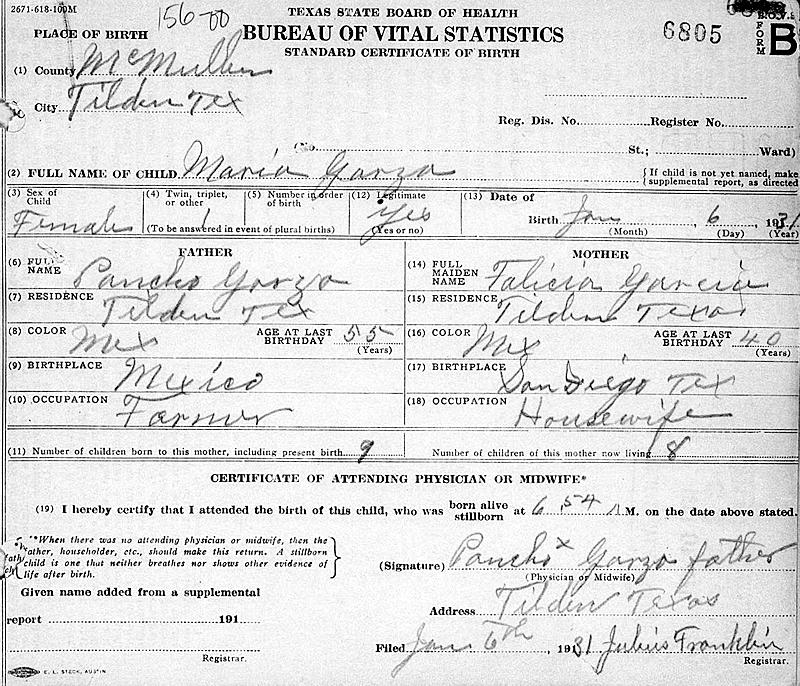 2671-618-100M
156-00
TEXAS STATE BOARD OF HEALTH
BUREAU OF VITAL STATISTICS
STANDARD CERTIFICATE OF BIRTH
6805
FORM B
PLACE OF BIRTH
(1) County McMullen
City Tilden Tex
Reg. Dis. No. Register No.
(No. St.; Ward)
(2) FULL NAME OF CHILD Maria Garza { If child is not yet named, make supplemental report, as directed
(3) Sex of Child Female (4) Twin, triplet, or other 1 (5) Number in order of birth (12) Legitimate Yes (Yes or no) (13) Date of Birth Jan 6 1931
(To be answered in event of plural births) (Month) (Day) (Year)
FATHER
(6) FULL NAME Pancho Garza
(7) RESIDENCE Tilden Tex
(8) COLOR Mex AGE AT LAST BIRTHDAY 55 (Years)
(9) BIRTHPLACE Mexico
(10) OCCUPATION Farmer
MOTHER
(14) FULL MAIDEN NAME Falicia Garcia
(15) RESIDENCE Tilden Texas
(16) COLOR Mex AGE AT LAST BIRTHDAY 40 (Years)
(17) BIRTHPLACE San Diego Tex
(18) OCCUPATION Housewife
(11) Number of children born to this mother, including present birth 9 Number of children of this mother now living 8
CERTIFICATE OF ATTENDING PHYSICIAN OR MIDWIFE*
(19) I hereby certify that I attended the birth of this child, who was born alive stillborn at 6 54 M. on the date above stated.
"*When there was no attending physician or midwife, then the
father, householder, etc., should make this return. A stillborn
child is one that neither breathes nor shows other evidence of
life after birth.
(Signature) Pancho x Garza father
(Physician or Midwife)
Given name added from a supplemental
report 191
Registrar.
Address Tilden Texas
Filed Jan 6th, 1931 Julius Franklin
Registrar.
E. L. STECK, AUSTIN